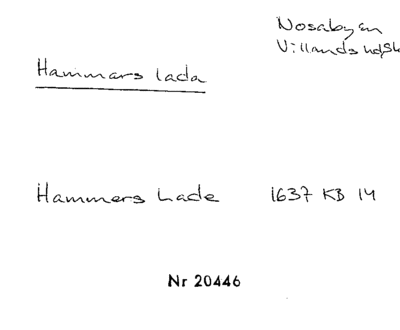 Nosabyen
Villands hd, Sk
Hammars lada
Hammers Lade 1637 KB 14
Nr 20446